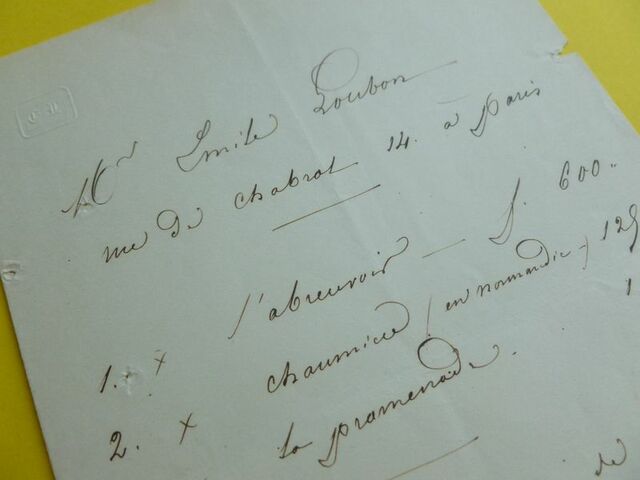 Mr Emile Loubon
rue de chabrol 14. à Paris
1. x l'abreuvoir — f. 600.
2. x chaumière (en normandie) 125
la promenade.
de